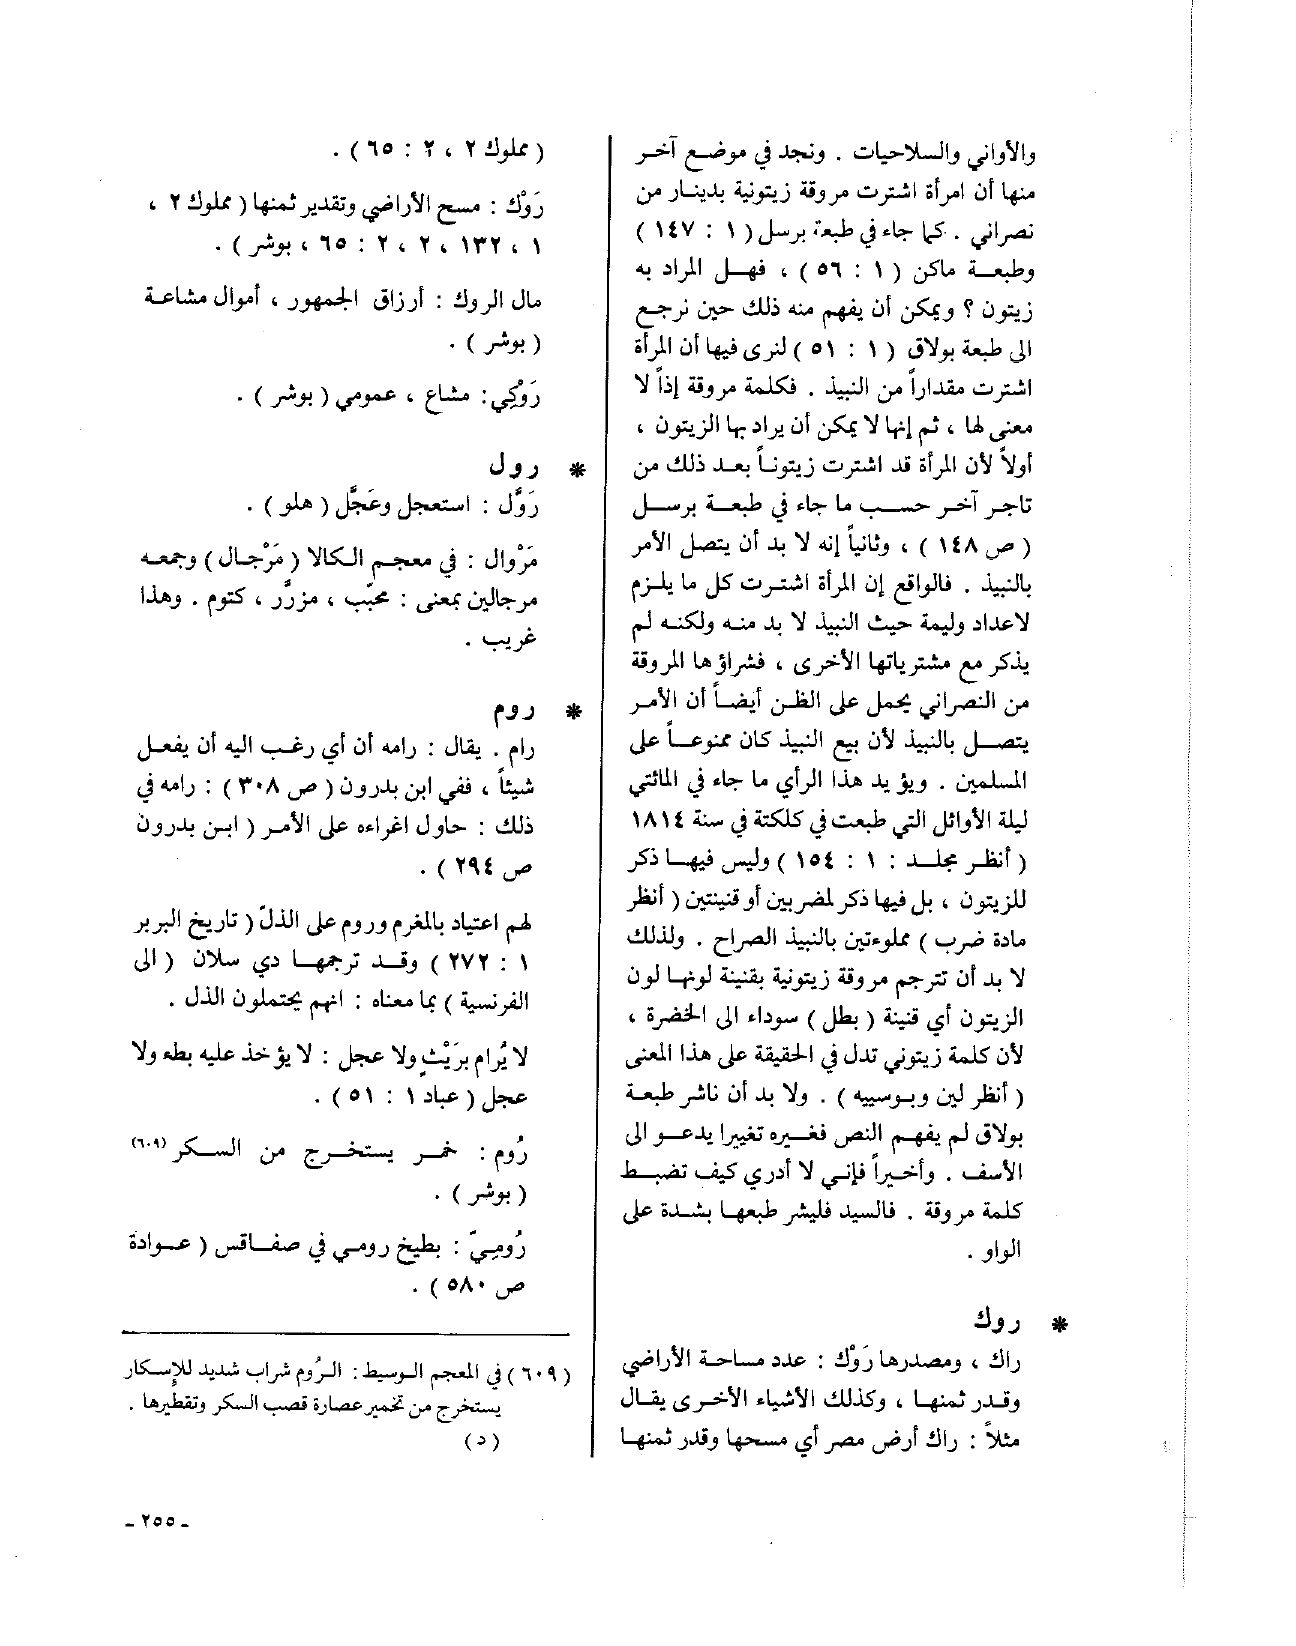 والأواني والسلاحيات . ونجد في موضع آخر
منها أن امرأة اشترت مروقة زيتونية بدينار من
نصراني . كما جاء في طبعة برسل ( ١ : ١٤٧ )
وطبعة ماكن ( ١ : ٥٦ ) ، فهل المراد به
زيتون ؟ ويمكن أن يفهم منه ذلك حين نرجع
الى طبعة بولاق ( ١ : ٥١ ) لنرى فيها أن المرأة
اشترت مقداراً من النبيذ . فكلمة مروقة إذاً لا
معنى لها ، ثم إنها لا يمكن أن يراد بها الزيتون ،
أولاً لأن المرأة قد اشترت زيتوناً بعد ذلك من
تاجر آخر حسب ما جاء في طبعة برسل
( ص ١٤٨ ) ، وثانياً إنه لا بد أن يتصل الأمر
بالنبيذ . فالواقع إن المرأة اشترت كل ما يلزم
لاعداد وليمة حيث النبيذ لا بد منه ولكنه لم
يذكر مع مشترياتها الأخرى ، فشراؤها المروقة
من النصراني يحمل على الظن أيضاً أن الأمر
يتصل بالنبيذ لأن بيع النبيذ كان ممنوعاً على
المسلمين . ويؤيد هذا الرأي ما جاء في المائتي
ليلة الأوائل التي طبعت في كلكتة في سنة ١٨١٤
( أنظر مجلد : ١ : ١٥٤ ) وليس فيها ذكر
للزيتون ، بل فيها ذكر لمضربين أو قنينتين ( أنظر
مادة ضرب ) مملوءتين بالنبيذ الصراح . ولذلك
لا بد أن تترجم مروقة زيتونية بقنينة لونها لون
الزيتون أي قنينة ( بطل ) سوداء الى الخضرة ،
لأن كلمة زيتوني تدل في الحقيقة على هذا المعنى
( أنظر لين وبوسييه ) . ولا بد أن ناشر طبعة
بولاق لم يفهم النص فغيره تغييرا يدعو الى
الأسف . وأخيراً فإني لا أدري كيف تضبط
كلمة مروقة . فالسيد فليشر طبعها بشدة على
الواو .
* روك
راك ، ومصدرها رَوْك : عدد مساحة الأراضي
وقدر ثمنها ، وكذلك الأشياء الأخرى يقال
مثلاً : راك أرض مصر أي مسحها وقدر ثمنها
( مملوك ٢ ، ٢ : ٦٥ ) .
رَوْك : مسح الأراضي وتقدير ثمنها ( مملوك ٢ ،
١ ، ١٣٢ ، ٢ ، ٢ : ٦٥ ، بوشر ) .
مال الروك : أرزاق الجمهور ، أموال مشاعة
( بوشر ) .
رَوْكي : مشاع ، عمومي ( بوشر ) .
* رول
رَوَّل : استعجل وعَجَّل ( هلو ) .
مَرْوال : في معجم الكالا ( مَرْجال ) وجمعه
مرجالين بمعنى : محبّب ، مزرَّر ، كتوم . وهذا
غريب .
* روم
رام . يقال : رامه أن أي رغب اليه أن يفعل
شيئاً ، ففي ابن بدرون ( ص ٣٠٨ ) : رامه في
ذلك : حاول اغراءه على الأمر ( ابن بدرون
ص ٢٩٤ ) .
لهم اعتياد بالمغرم وروم على الذلّ ( تاريخ البربر
١ : ٢٧٢ ) وقد ترجمها دي سلان ( الى
الفرنسية ) بما معناه : انهم يحتملون الذل .
لا يُرام بِرَيْثٍ ولا عجل : لا يؤخذ عليه بطء ولا
عجل ( عباد ١ : ٥١ ) .
رُوم : خمر يستخرج من السكر (٦٠٩)
( بوشر ) .
رُوميّ : بطيخ رومي في صفاقس ( عوادة
ص ٥٨٠ ) .
( ٦٠٩ ) في المعجم الوسيط : الرُّوم شراب شديد للإسكار
يستخرج من تخمير عصارة قصب السكر وتقطيرها .
( د )
- ٢٥٥ -